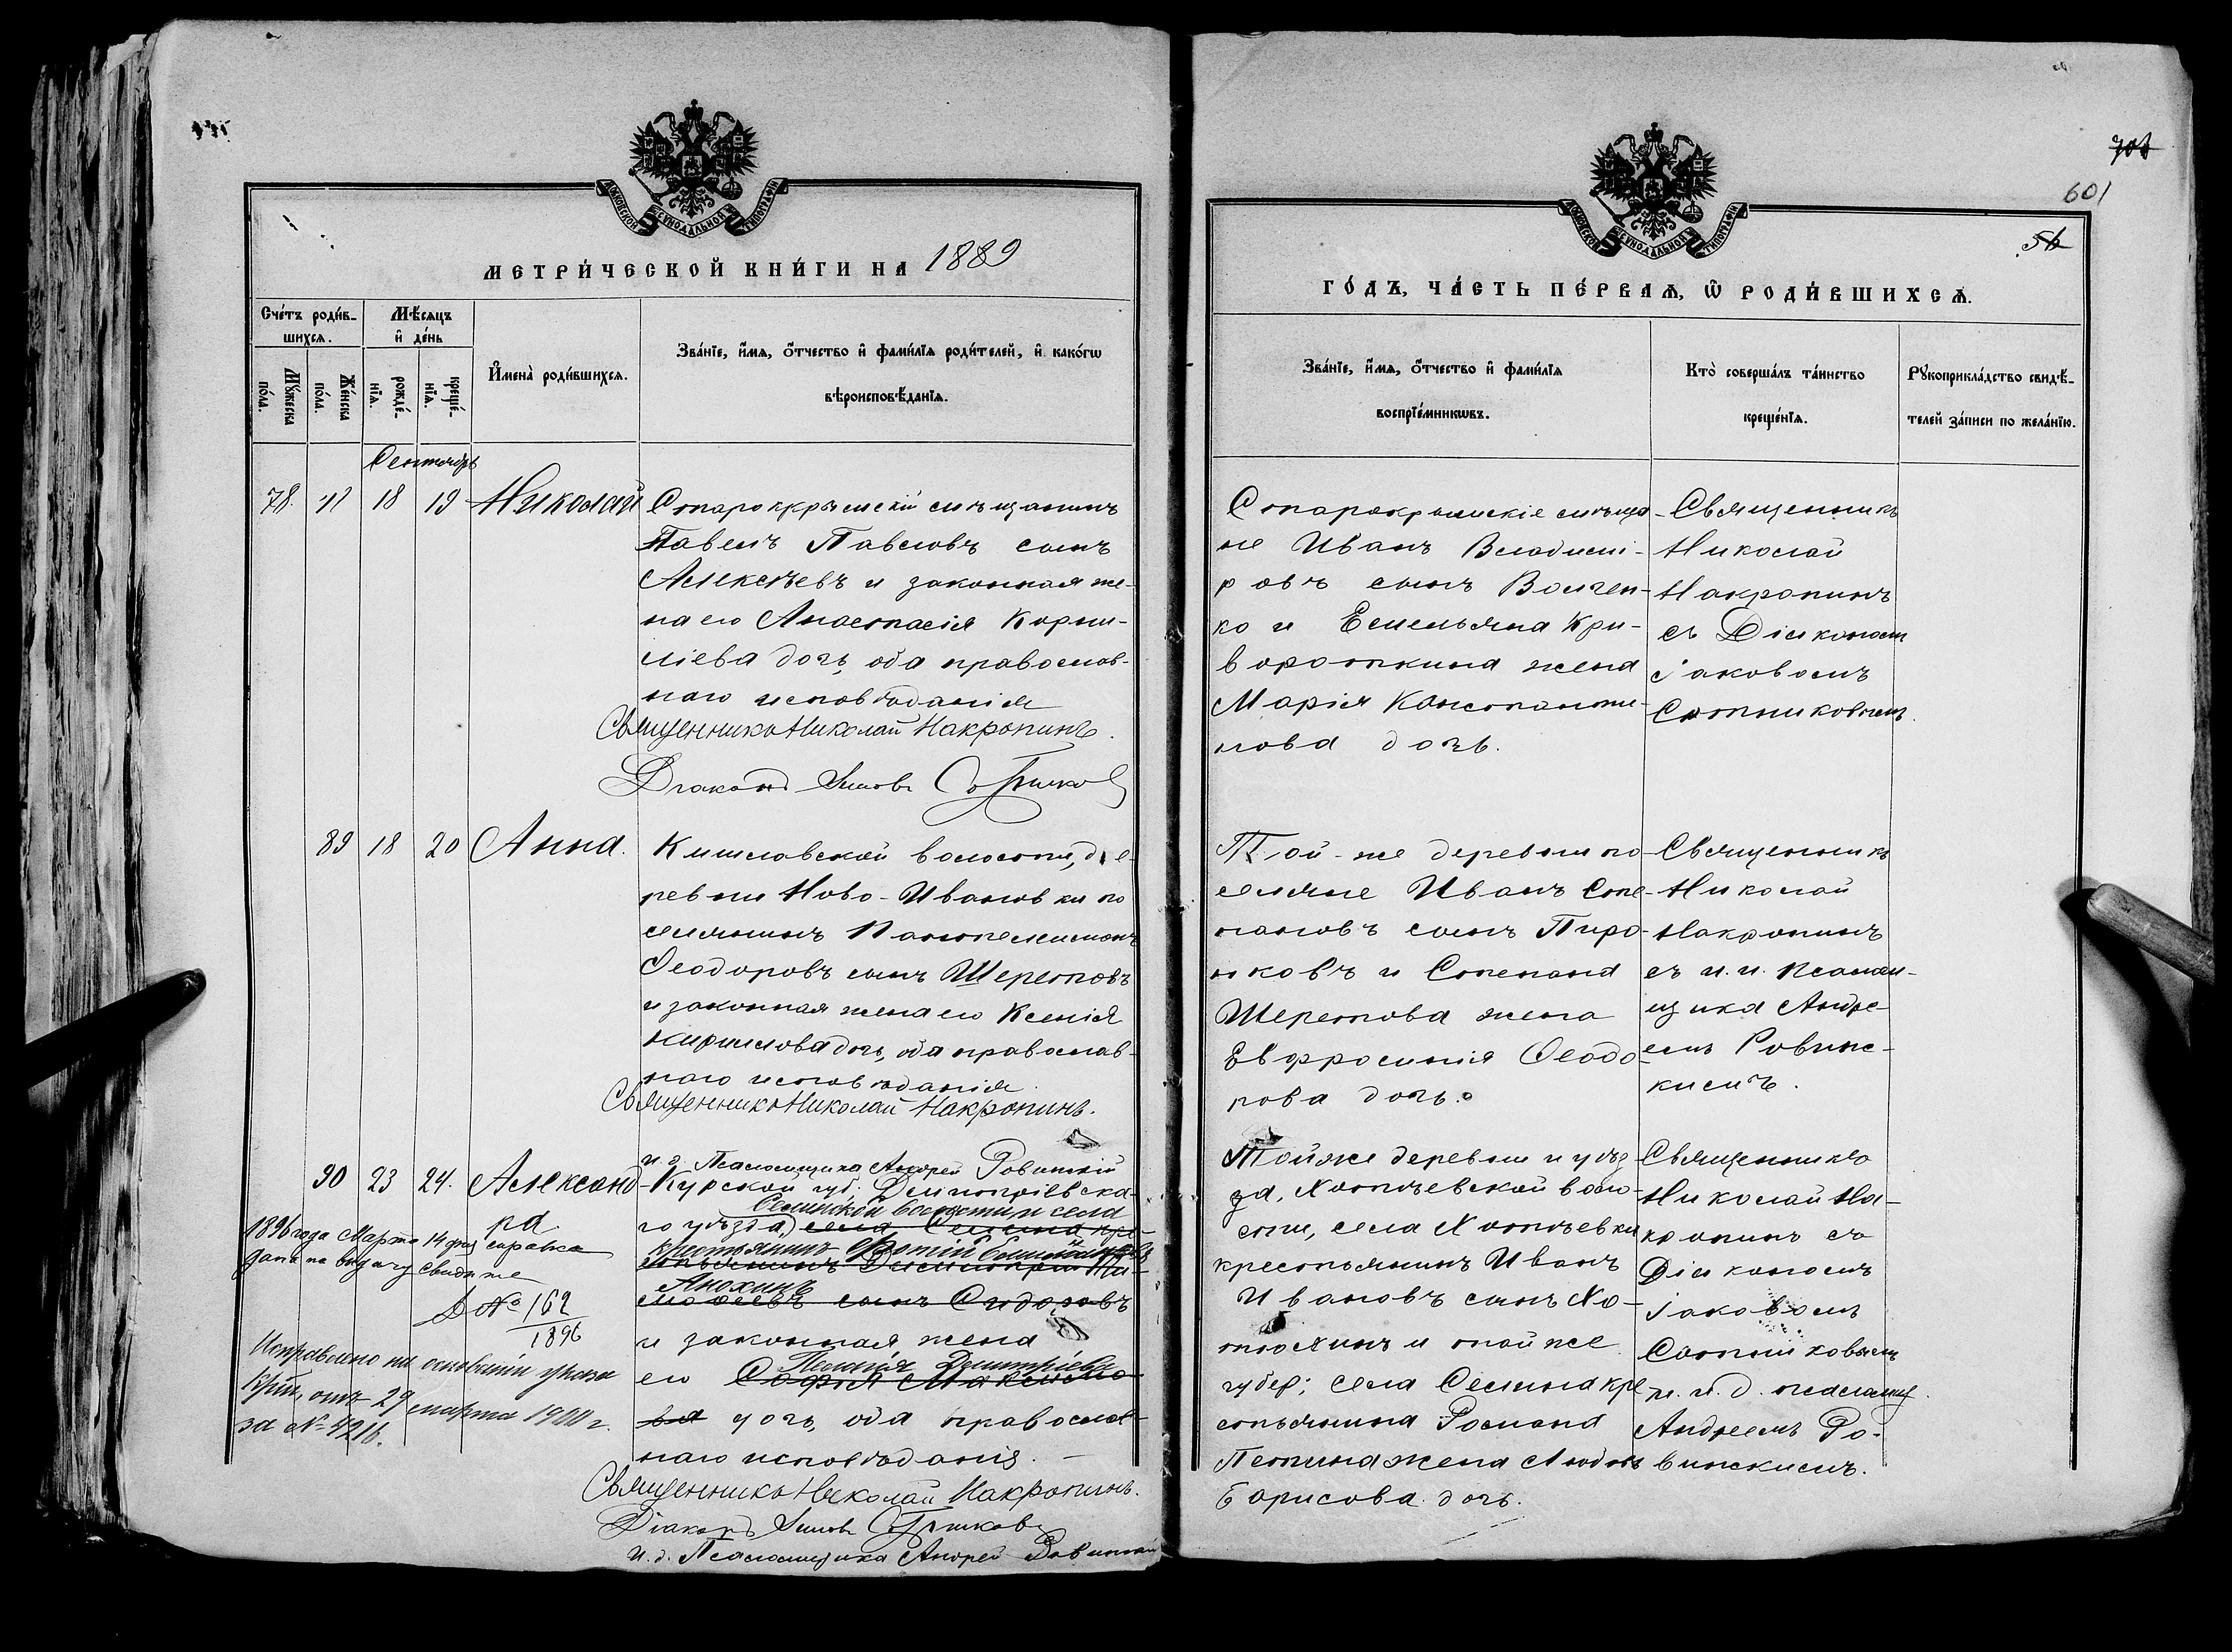 МОСКОВСКОЙ СѴНОДАЛЬНОЙ ТИПОГРАФІИ
МЕТРИ́ЧЕСКОЙ КНИ́ГИ НА 1889
Сче́тъ роди́в-
шихсѧ.
Мѣ́сяцъ
и҆ де́нь
Мꙋ́жеска
по́ла.
Же́нска
по́ла.
рожде́-
нїѧ.
креще́-
нїѧ.
И҆мена̀ роди́вшихсѧ.
Зва́нїе, и҆́мѧ, ѻ҆́тчество и҆ фами́лїѧ роди́телей, и҆ како́гѡ
вѣроисповѣ́данїѧ.
Сентябрь
78. 11 18 19 Николай
Старокрымскій мѣщанинъ
Павелъ Павловъ сынъ
Алексѣевъ и законная же-
на его Анастасія Корни-
ліева дочь, оба православ-
наго исповѣданія
Священникъ Николай Макропинъ.
Діаконъ Іаковъ Сотников
89 18 20 Анна.
Кишлавской волости, де-
ревни Ново-Ивановки по
селянинъ Пантелеимонъ
Ѳеодоровъ сынъ Шерстовъ
и законная жена его Ксенія
Кириллова дочь, оба православ-
наго исповѣданія.
Священникъ Николай Макропинъ.
и. д. Псаломщика Андрей Ровинскій
90 23 24. Александ
ра
Курской губ. Дмитріевска-
Селинской волости села
го уѣзда, села Селина кре-
крестьянинъ Фотій
стьянинъ Димитрій Ти-
Анохинъ
моѳеевъ сынъ Сидоровъ
и законная жена
Пелагія Дмитріева
его Софія Максимо-
ва дочь, оба православ-
наго исповѣданія.
Священникъ Николай Макропинъ.
Діаконъ Іаковъ Сотниковъ
и. д. Псаломщика Андрей Ровинскій
1896 года Марта 14 дня справка
дана на выдачу свидѣте
Д № 162
1896
Исправлено на основаніи указа
от 29 марта 1900 г.
за № 4216.
703
601
56
МОСКОВСКОЙ СѴНОДАЛЬНОЙ ТИПОГРАФІИ
ГО́ДЪ, ЧА́СТЬ ПЕ́РВАѦ, Ѡ҆ РОДИ́ВШИХСѦ.
Зва́нїе, и҆́мѧ, ѻ҆́тчество и҆ фами́лїѧ
воспрїе́мникѡвъ.
Кто̀ соверша́лъ та́инство
креще́нїѧ.
Рꙋкоприкла́дство свидѣ́-
телей за́писи по жела́нїю.
Старокрымскіе мѣща-
не Иванъ Владимі-
ровъ сынъ Волчен-
ко и Емельяна Кри-
вороткина жена
Марія Константи-
нова дочь.
Священникъ
Николай
Макропинъ
съ Діакономъ
Іаковомъ
Сотниковымъ.
Той-же деревни по
селяне Иванъ Сте-
пановъ сынъ Пиро-
жковъ и Степана
Шерстова жена
Евфросинія Ѳеодо-
рова дочь.
Священникъ
Николай
Макропинъ
съ и. д. псалом-
щика Андре-
емъ Ровинс-
кимъ.
Той же деревни и уѣз
да, Хотѣевской воло-
сти, села Хотѣевки
крестьянинъ Иванъ
Ивановъ сынъ Хо-
и той же
губер; села Селина кре
стьянина Романа
Петина жена Любовь
Борисова дочь.
Священникъ
Николай Ма-
кропинъ съ
Діакономъ
Іаковомъ
Сотниковымъ
и. д. псаломщ.
Андреемъ Ро-
винскимъ.